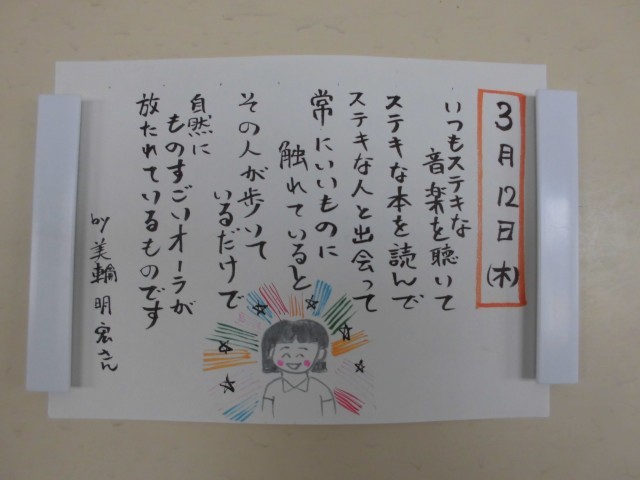 3月12日(木)
いつもステキな
音楽を聴いて
ステキな本を読んで
ステキな人と出会って
常にいいものに
触れていると
その人が歩いて
いるだけで
自然に
ものすごいオーラが
放たれているものです
by美輪明宏さん